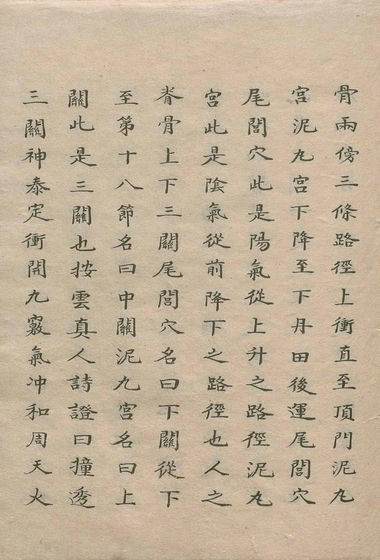 骨兩傍三條路徑上衝直至頂門泥九
宮泥九宮下降至下丹田後運尾閭穴
尾閭穴此是陽氣從上升之路徑泥九
宮此是陰氣從前降下之路徑也人之
脊骨上下三關尾閭穴名曰下關從下
至第十八節名曰中關泥九宮名曰上
關此是三關也按雲真人詩證曰撞透
三關神泰定衝開九竅氣冲和周天火